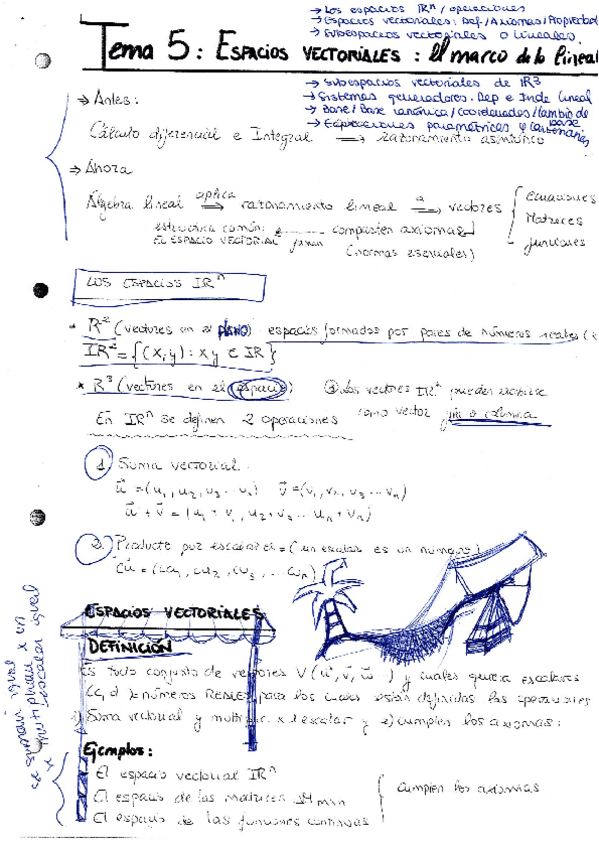 → Los espacios IRⁿ / operaciones
→ Espacios vectoriales: Def/Axiomas/Propiedad
→ Subespacios vectoriales o lineales
Tema 5: ESPACIOS VECTORIALES: El marco de lo lineal
→ Subespacios vectoriales de IR3
→ Sistemas generadores. Dep e Inde lineal
→ Base / Base canónica / Coordenadas / Cambio de base
→ Ecuaciones paramétricas y cartesianas
→ Antes:
Cálculo diferencial e Integral → razonamiento asintótico
→ Ahora
Álgebra lineal aplica → razonamiento lineal a → vectores { Ecuaciones
Matrices
funciones
estructura común: ← comparten axiomas
EL ESPACIO VECTORIAL (normas esenciales)
LOS ESPACIOS IRⁿ
* R² (vectores en el PLANO) espacios formados por pares de números reales
IR² = {(x,y) : x y ∈ IR}
* R³ (vectores en el espacio) Los vectores IRⁿ pueden escribirse
como vector fila o columna
En IRⁿ se definen 2 operaciones
1. Suma vectorial
u⃗ = (u₁, u₂, u₃ ... uₙ) v⃗ = (v₁, v₂, v₃ ... vₙ)
u⃗ + v⃗ = (u₁ + v₁, u₂ + v₂ ... uₙ + vₙ)
2. Producto por escalar c = (un escalar es un número)
cu⃗ = (cu₁, cu₂, cu₃ ... cuₙ)
ESPACIOS VECTORIALES
DEFINICIÓN
Es todo conjunto de vectores V (u⃗, v⃗, w⃗ ...) y cuales quiera escalares
(c, d) = números REALES, para los cuales están definidas las operaciones
1) Suma vectorial y multiplic. x 1 escalar y 2) cumplen los axiomas:
se suman igual
x multiplican x un
escalar igual
Ejemplos:
- El espacio vectorial IRⁿ
- El espacio de las matrices M mxn
- El espacio de las funciones continuas
cumplen los axiomas